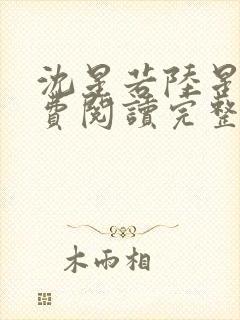 沈星若陸星
費閱讀完整
木雨相